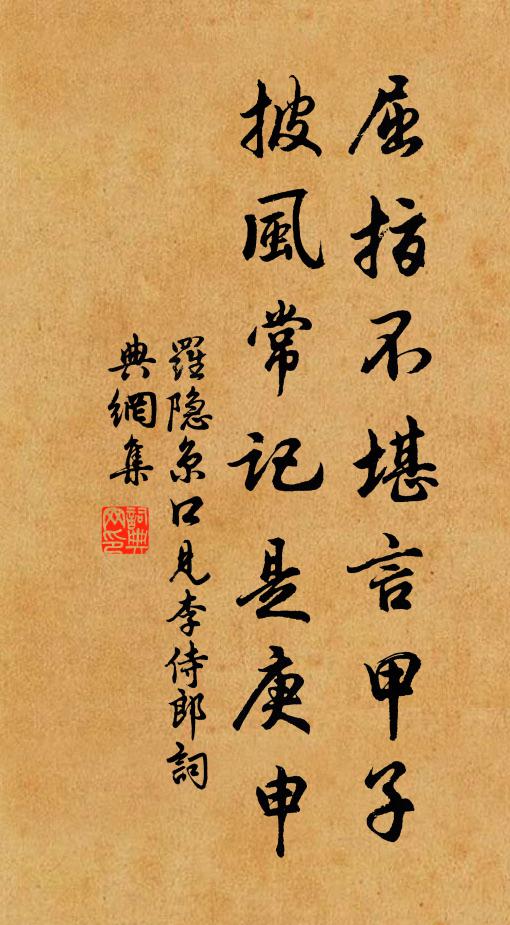 屈指不堪言甲子
披風常記是庚申
羅隐京口見李侍郎詞
典網集
詞典
网印